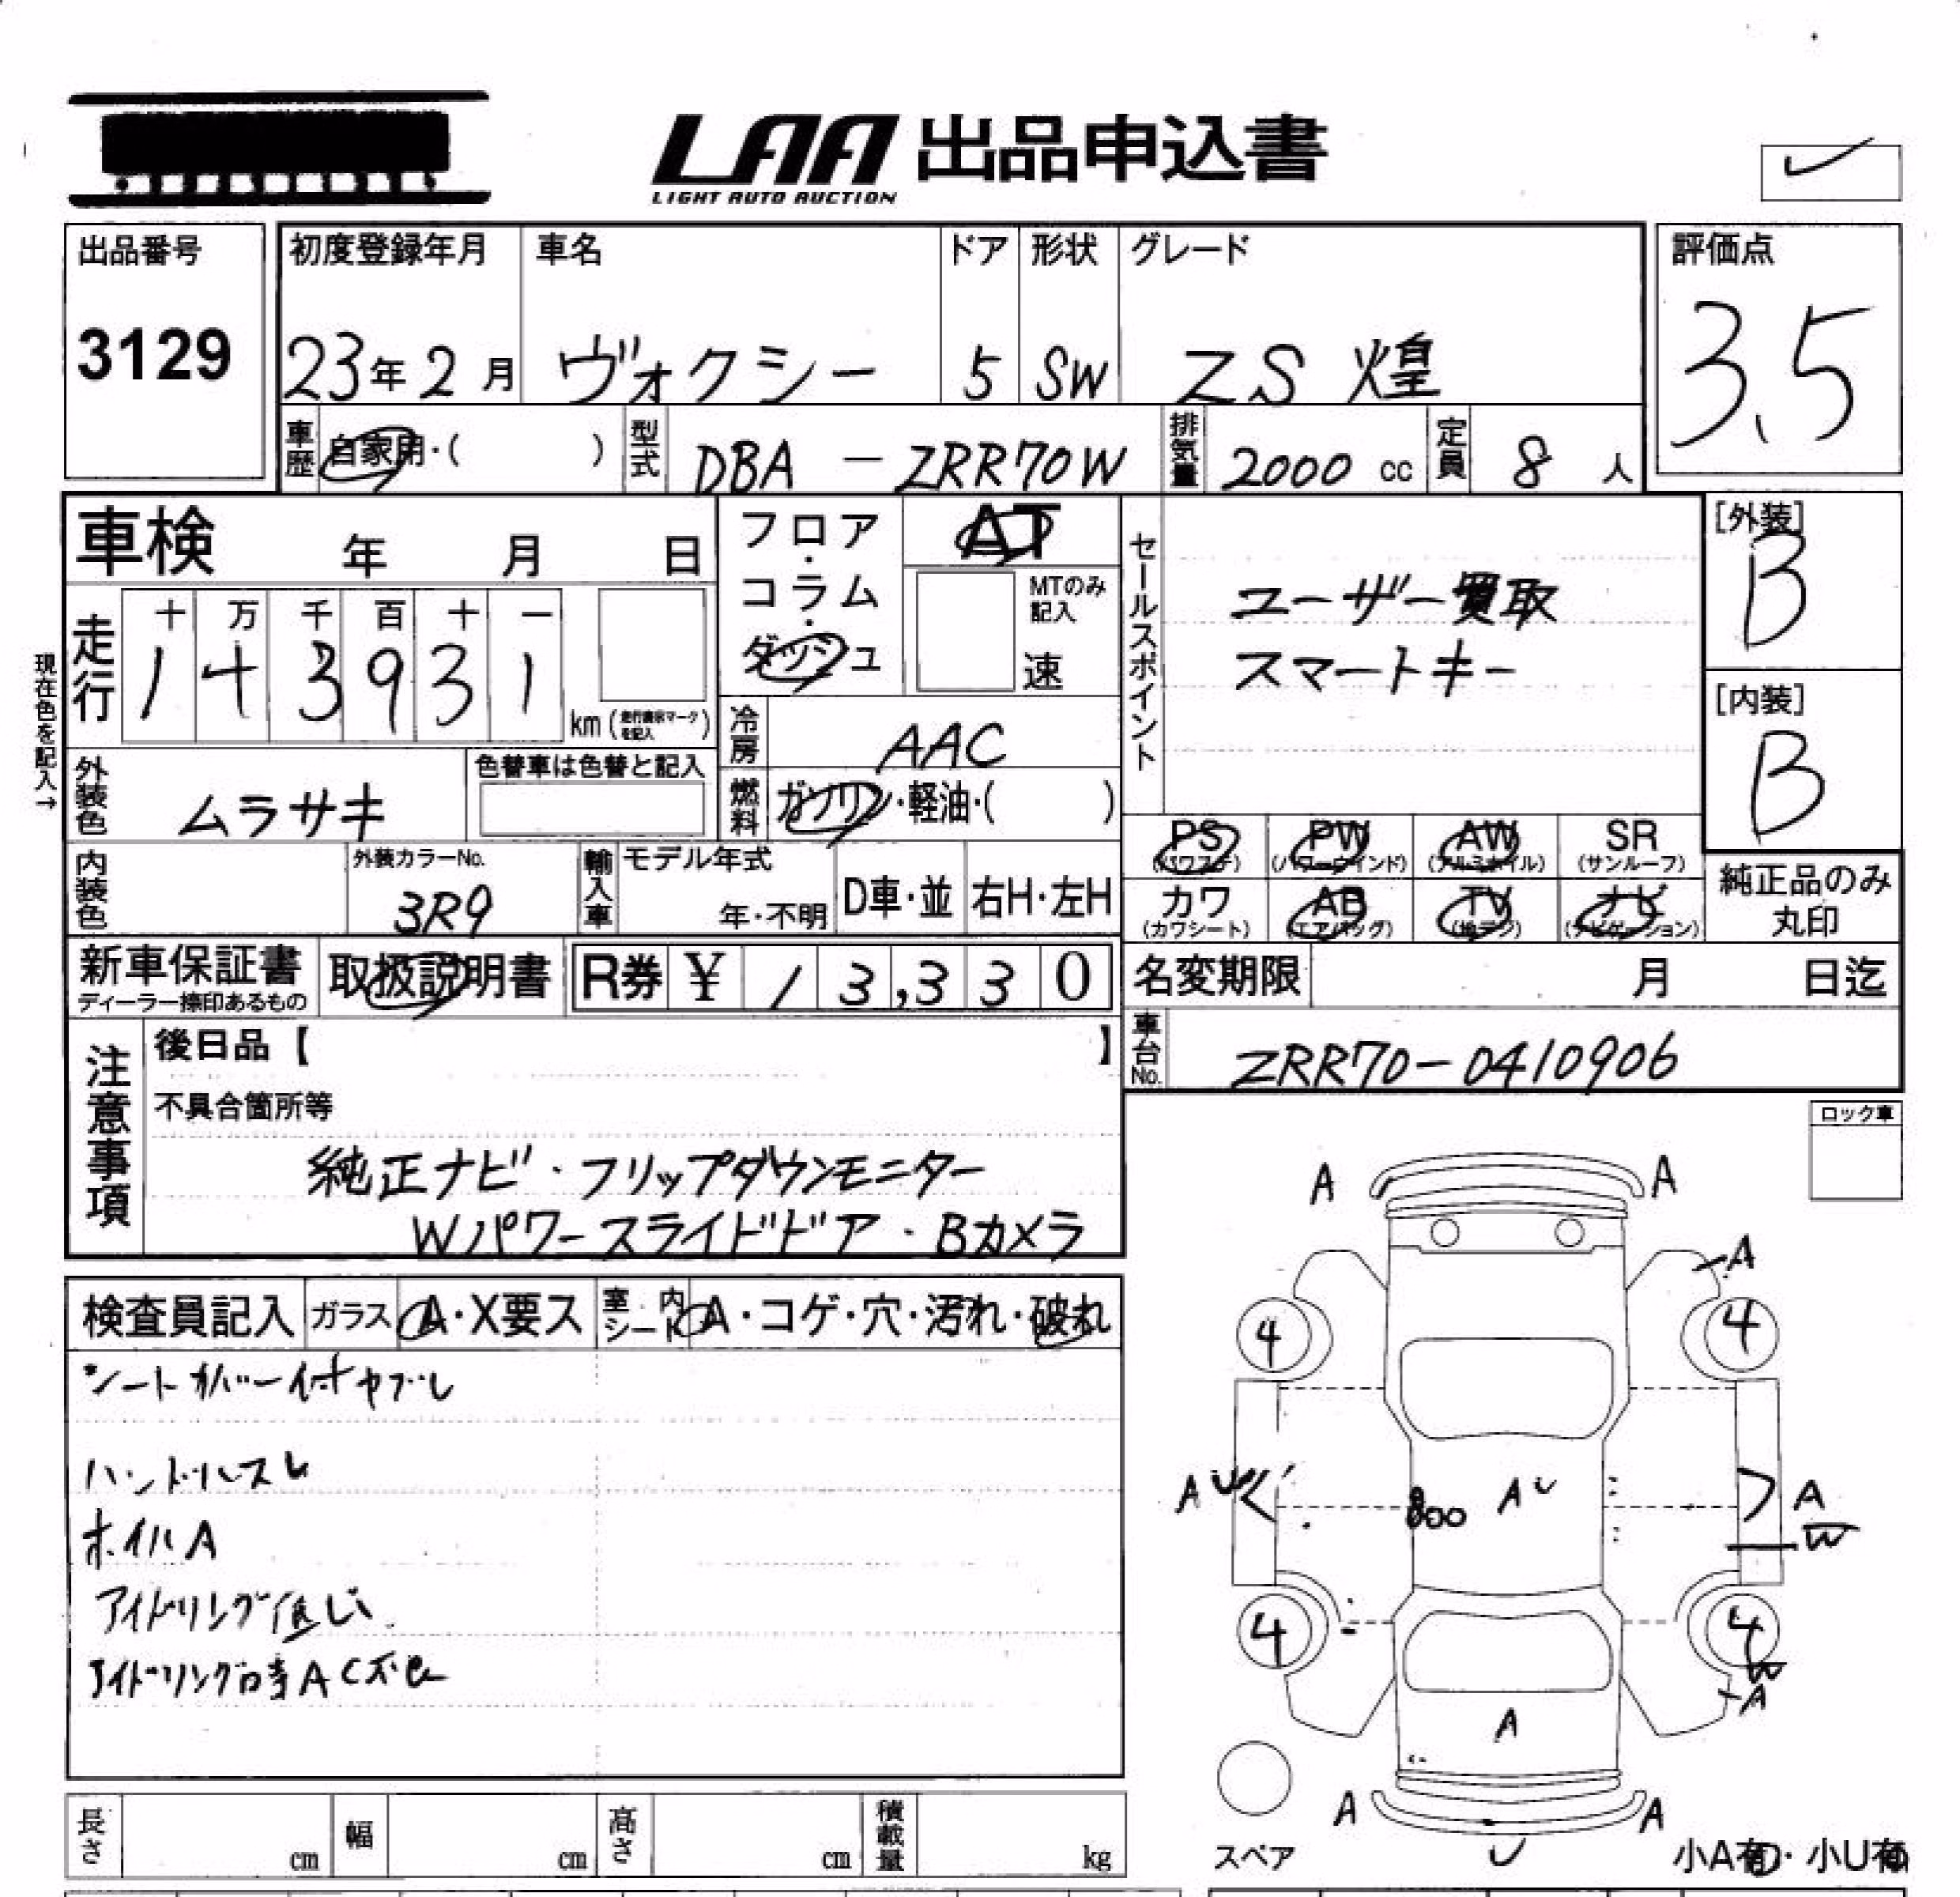 LAA 出品申込書
LIGHT AUTO AUCTION
出品番号
3129
初度登録年月
23年2月
車名
ヴォクシー
ドア
5
形状
SW
グレード
ZS 煌
評価点
3.5
車歴
自家用・( )
型式
DBA-ZRR70W
排気量
2000 cc
定員
8 人
車検 年 月 日
フロア・コラム・ダッシュ
AT
MTのみ記入
速
セールスポイント
ユーザー買取
スマートキー
[外装]
B
[内装]
B
現在色を記入→
走行
十 万 千 百 十 一
1 4 3 9 3 1
km(走行表示マークを記入)
冷房
AAC
外装色
ムラサキ
色替車は色替と記入
燃料
ガソリン・軽油・( )
PS
(パワステ)
PW
(パワーウインド)
AW
(アルミホイル)
SR
(サンルーフ)
カワ
(カワシート)
AB
(エアバッグ)
TV
(地デジ)
ナビ
(ナビゲーション)
純正品のみ
丸印
内装色
外装カラーNo.
3R9
輸入車
モデル年式
年・不明
D車・並
右H・左H
新車保証書
ディーラー捺印あるもの
取扱説明書
R券 ¥ 13,330
名変期限 月 日迄
車台No.
ZRR70-0410906
注意事項
後日品【 】
不具合箇所等
純正ナビ・フリップダウンモニター
Wパワースライドドア・Bカメラ
ロック車
検査員記入
ガラス
A・X要ス
室内シート
A・コゲ・穴・汚れ・破れ
シートカバー付ヤブレ
ハンドルスレ
ホイルA
アイドリング低い
アイドリング時AC不良
A A
A
4 4
A U
800
A U
A
W
4 4
W
A
A
A A
U
スペア
小A有・小U有
長さ cm
幅 cm
高さ cm
積載量 kg